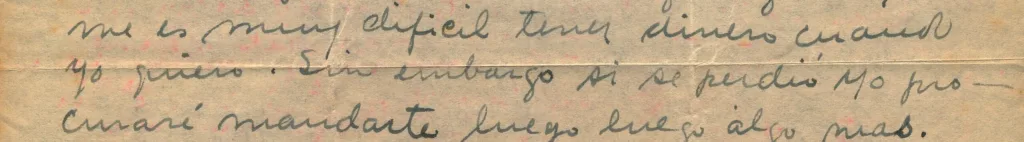 me es muy dificil tener dinero cuand
yo quiero. Sin embargo si se perdió yo pro-
curaré mandarte luego luego algo mas.